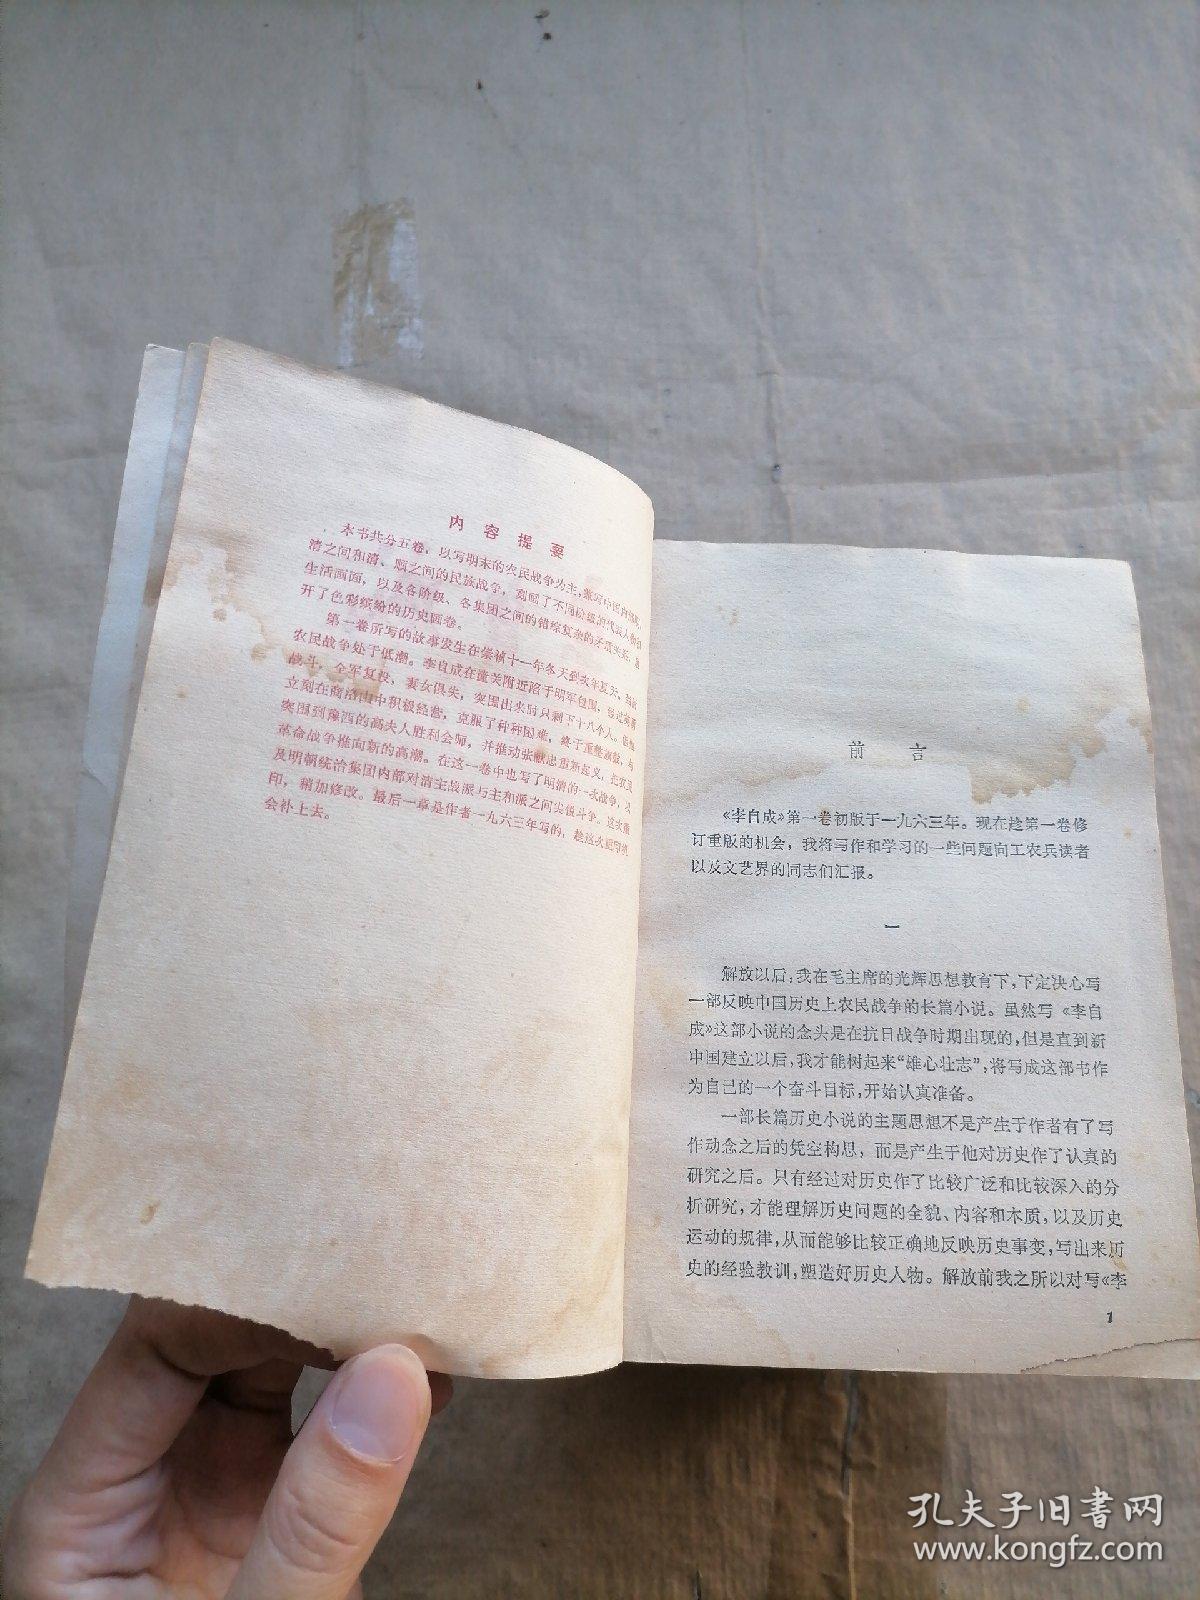 内容提要
本书共分五卷，以写明末的农民战争为主，兼写
清之间和清、顺之间的民族战争，刻画了不同阶级的代表人物
生活画面，以及各阶级、各集团之间的错综复杂的矛盾关系，展
开了色彩缤纷的历史画卷。
第一卷所写的故事发生在崇祯十一年冬天到次年夏天，
农民战争处于低潮。李自成在潼关附近陷于明军包围，经过
战斗，全军复没，妻女俱失，突围出来时只剩下十八个人。
立刻在商洛山中积极经营，克服了种种困难，终于重整旗鼓，与
突围到豫西的高夫人胜利会师，并推动张献忠重新起义，把农民
革命战争推向新的高潮。在这一卷中也写了明清的一次战争，以
及明朝统治集团内部对清主战派与主和派之间尖锐斗争。这次重
印，稍加修改。最后一章是作者一九六三年写的，趁这次重印机
会补上去。
前言
《李自成》第一卷初版于一九六三年。现在趁第一卷修
订重版的机会，我将写作和学习的一些问题向工农兵读者
以及文艺界的同志们汇报。
一
解放以后，我在毛主席的光辉思想教育下，下定决心写
一部反映中国历史上农民战争的长篇小说。虽然写《李自
成》这部小说的念头是在抗日战争时期出现的，但是直到新
中国建立以后，我才能树起来“雄心壮志”，将写成这部书作
为自己的一个奋斗目标，开始认真准备。
一部长篇历史小说的主题思想不是产生于作者有了写
作动念之后的凭空构思，而是产生于他对历史作了认真的
研究之后。只有经过对历史作了比较广泛和比较深入的分
析研究，才能理解历史问题的全貌、内容和本质，以及历史
运动的规律，从而能够比较正确地反映历史事变，写出来历
史的经验教训，塑造好历史人物。解放前我之所以对写《李
1
孔夫子旧书网
www.kongfz.com